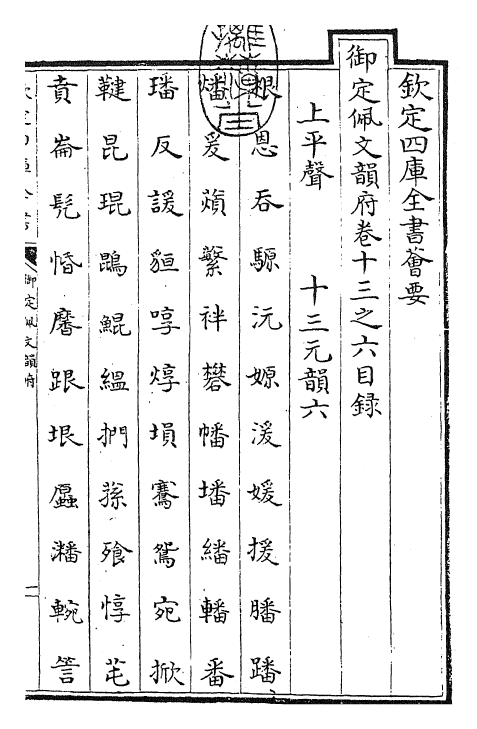 欽定四庫全書薈要
御定佩文韻府卷十三之六目録
上平聲 十三元韻六
根恩吞騵沅嫄湲媛援膰蹯
燔爰蘋蘩袢礬幡墦繙轓番
璠反諼貆啍焞塤騫鴛宛掀
鞬昆琨鵾鯤緼捫蓀飱惇芚
賁崙髡惛黁跟垠騩瀋輐
御定佩文韻府